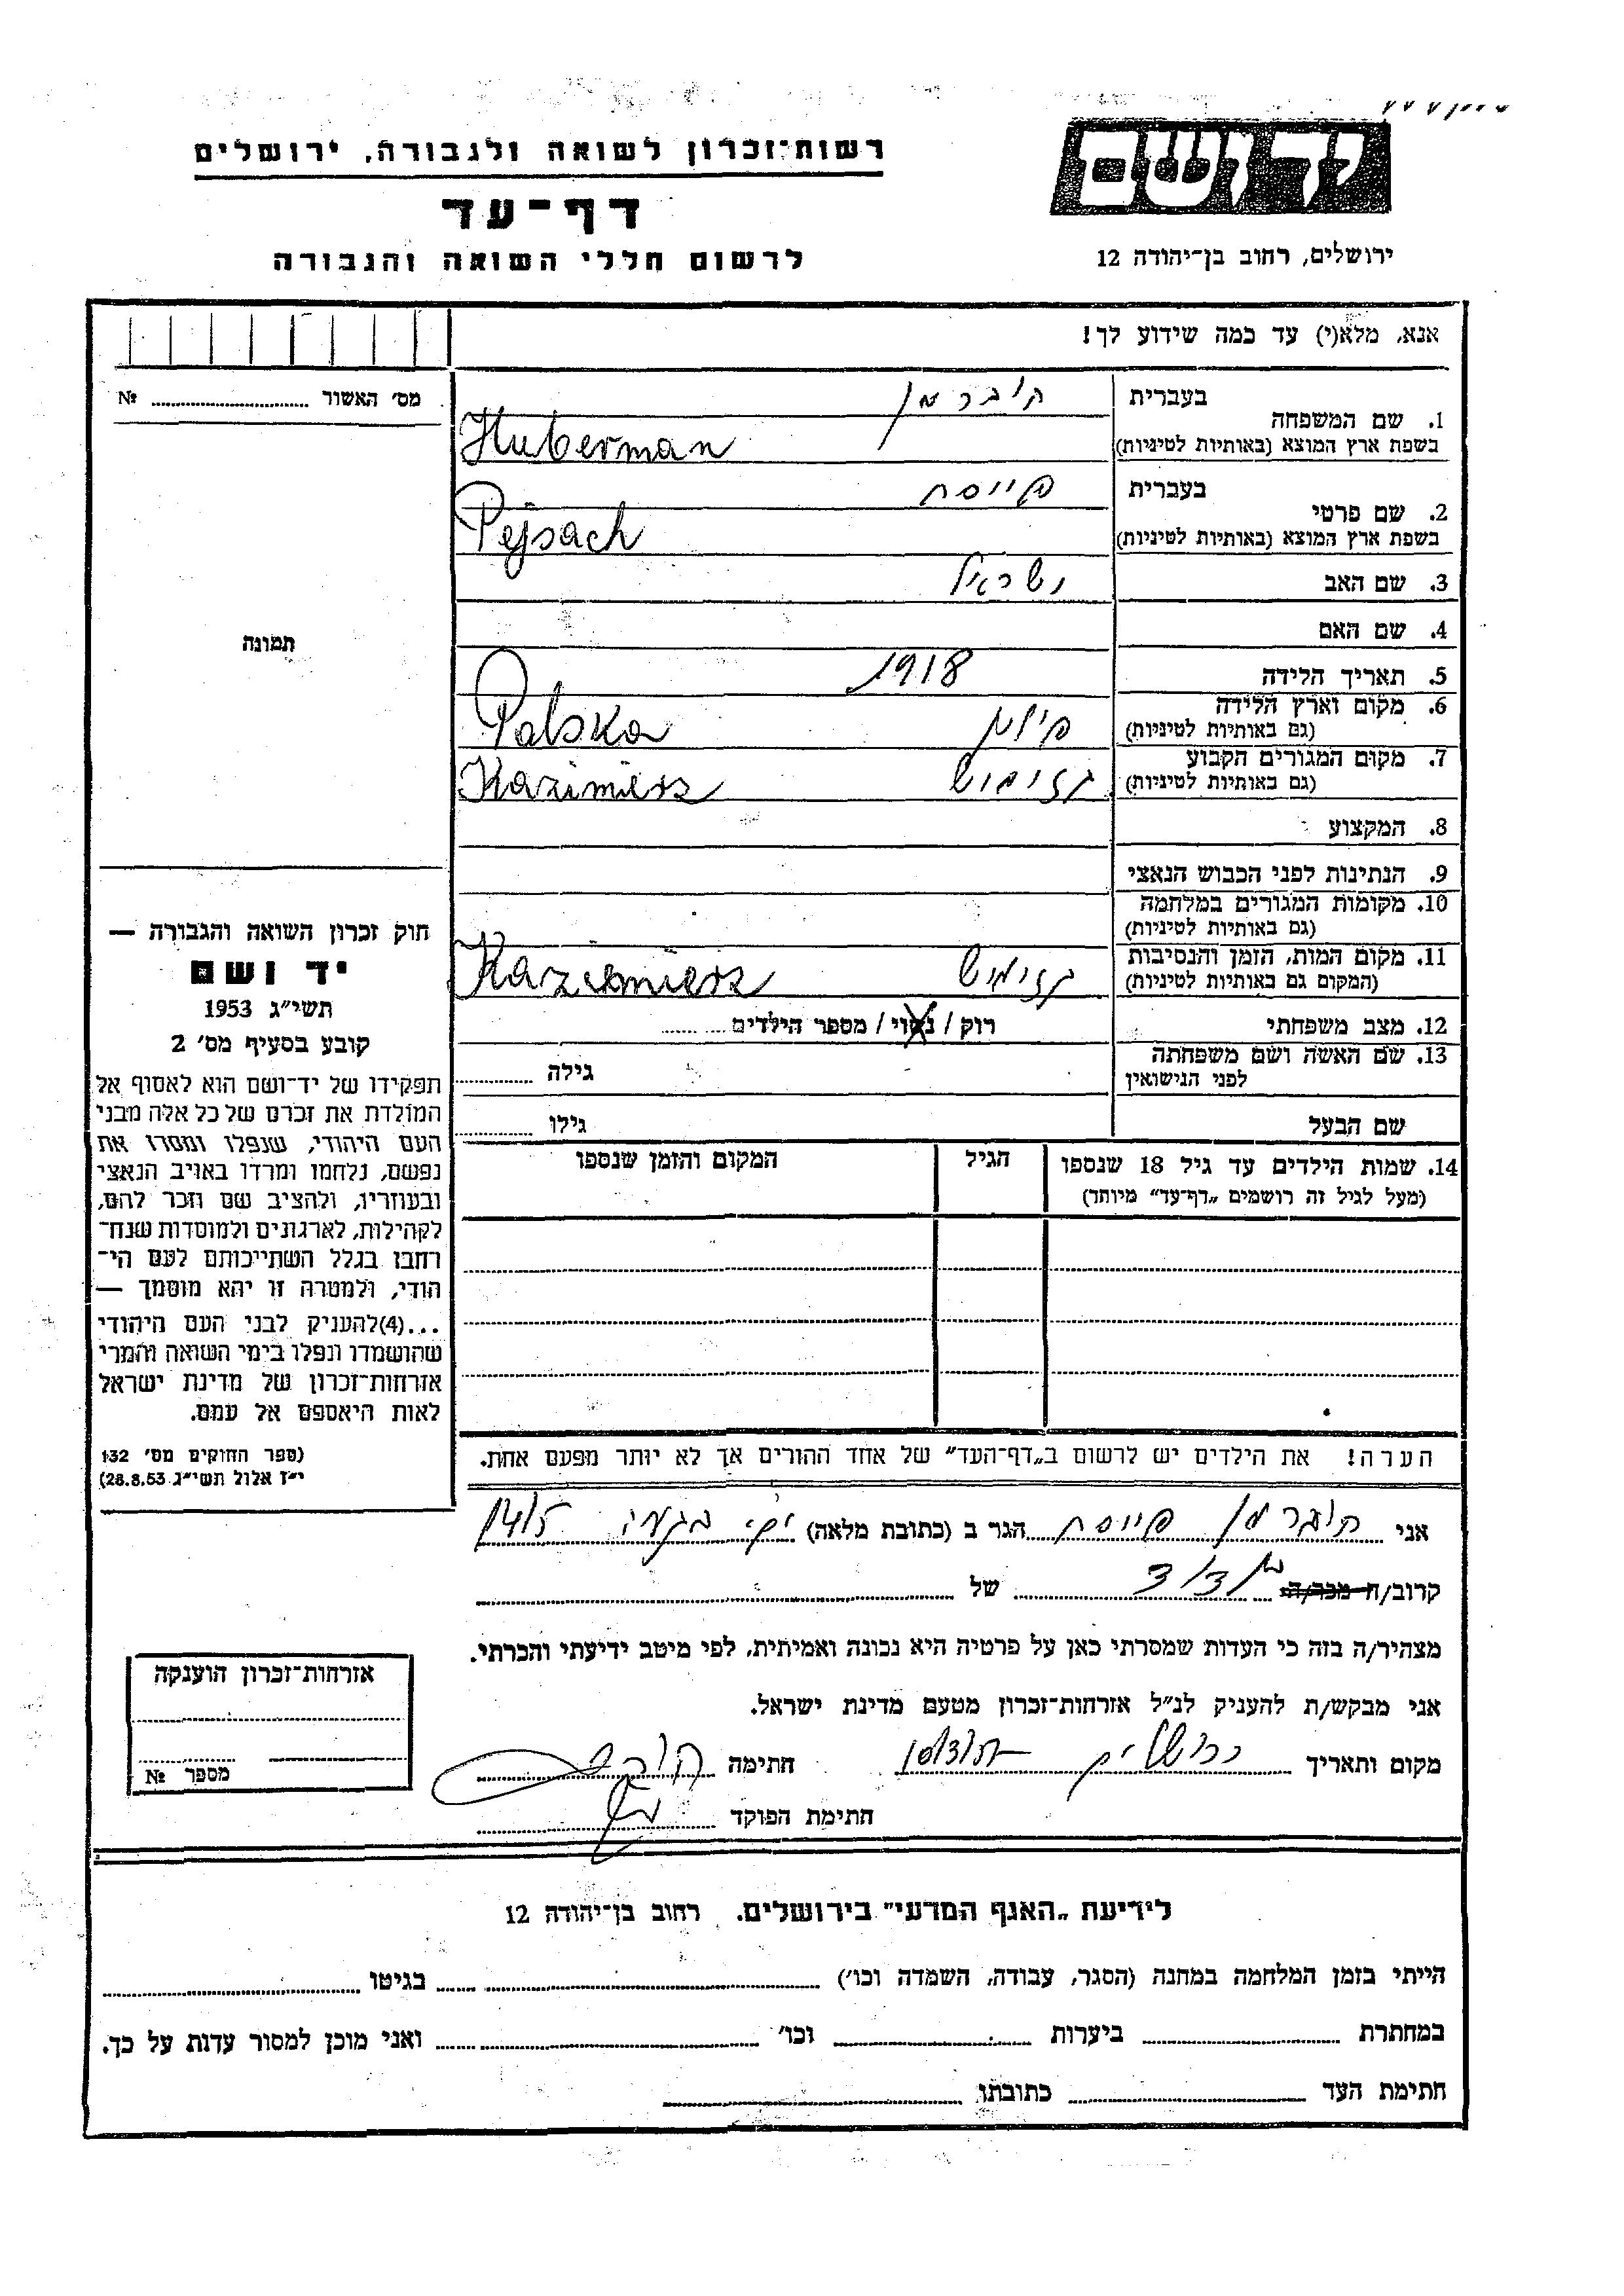 רשות-זכרון לשואה ולגבורה, ירושלים
יד ושם
דף-עד
לרשום חללי השואה והגבורה
ירושלים, רחוב בן-יהודה 12
אנא, מלא(י) עד כמה שידוע לך!
מס' האשור № 
1. שם המשפחה בעברית הוברמן
בשפת ארץ המוצא (באותיות לטיניות) Huberman
2. שם פרטי בעברית פייסח
בשפת ארץ המוצא (באותיות לטיניות) Pejsach
3. שם האב ישראל
4. שם האם
תמונה
5. תאריך הלידה 1918
6. מקום וארץ הלידה (גם באותיות לטיניות) פולין Polska
7. מקום המגורים הקבוע (גם באותיות לטיניות) קזימיש Kazimierz
8. המקצוע
9. הנתינות לפני הכבוש הנאצי
10. מקומות המגורים במלחמה (גם באותיות לטיניות)
11. מקום המות, הזמן והנסיבות (המקום גם באותיות לטיניות) קזימיש Kazimierz
12. מצב משפחתי רוק / נשוי / מספר הילדים
13. שם האשה ושם משפחתה לפני הנישואין גילה
שם הבעל גילו
14. שמות הילדים עד גיל 18 שנספו
(מעל לגיל זה רושמים "דף-עד" מיוחד)
הגיל
המקום והזמן שנספו
חוק זכרון השואה והגבורה —
יד ושם
תשי"ג 1953
קובע בסעיף מס' 2
תפקידו של יד-ושם הוא לאסוף אל
המולדת את זכרם של כל אלה מבני
העם היהודי, שנפלו ומסרו את
נפשם, נלחמו ומרדו באויב הנאצי
ובעוזריו, ולהציב שם וזכר להם,
לקהילות, לארגונים ולמוסדות שנח-
רבו בגלל השתייכותם לעם הי-
הודי, ולמטרה זו יהא מוסמך —
...(4)להעניק לבני העם היהודי
שהושמדו ונפלו בימי השואה והמרי
אזרחות-זכרון של מדינת ישראל
לאות היאספם אל עמם.
(ספר החוקים מס' 132
י"ז אלול תשי"ג 28.8.53)
הערה! את הילדים יש לרשום ב"דף-העד" של אחד ההורים אך לא יותר מפעם אחת.
אני הוברמן פייסח הגר ב (כתובת מלאה) 14/5
קרוב/ה מכר/ה של
מצהיר/ה בזה כי העדות שמסרתי כאן על פרטיה היא נכונה ואמיתית, לפי מיטב ידיעתי והכרתי.
אני מבקש/ת להעניק לנ"ל אזרחות-זכרון מטעם מדינת ישראל.
מקום ותאריך ירושלים חתימה
חתימת הפוקד
אזרחות-זכרון הוענקה
מספר №
לידיעת "האגף המדעי" בירושלים. רחוב בן-יהודה 12
הייתי בזמן המלחמה במחנה (הסגר, עבודה, השמדה וכו') בגיטו
במחתרת ביערות וכו' ואני מוכן למסור עדות על כך.
חתימת העד כתובתו